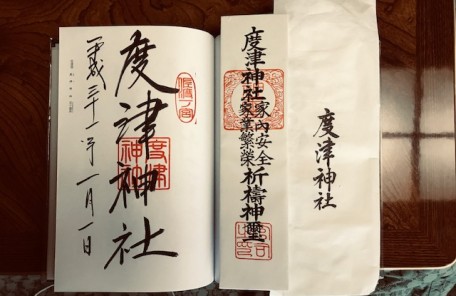 度津神社
平成三十一年一月一日
佐渡一ノ宮
度津神社家内安全家業繁榮祈禱神璽
度津神社